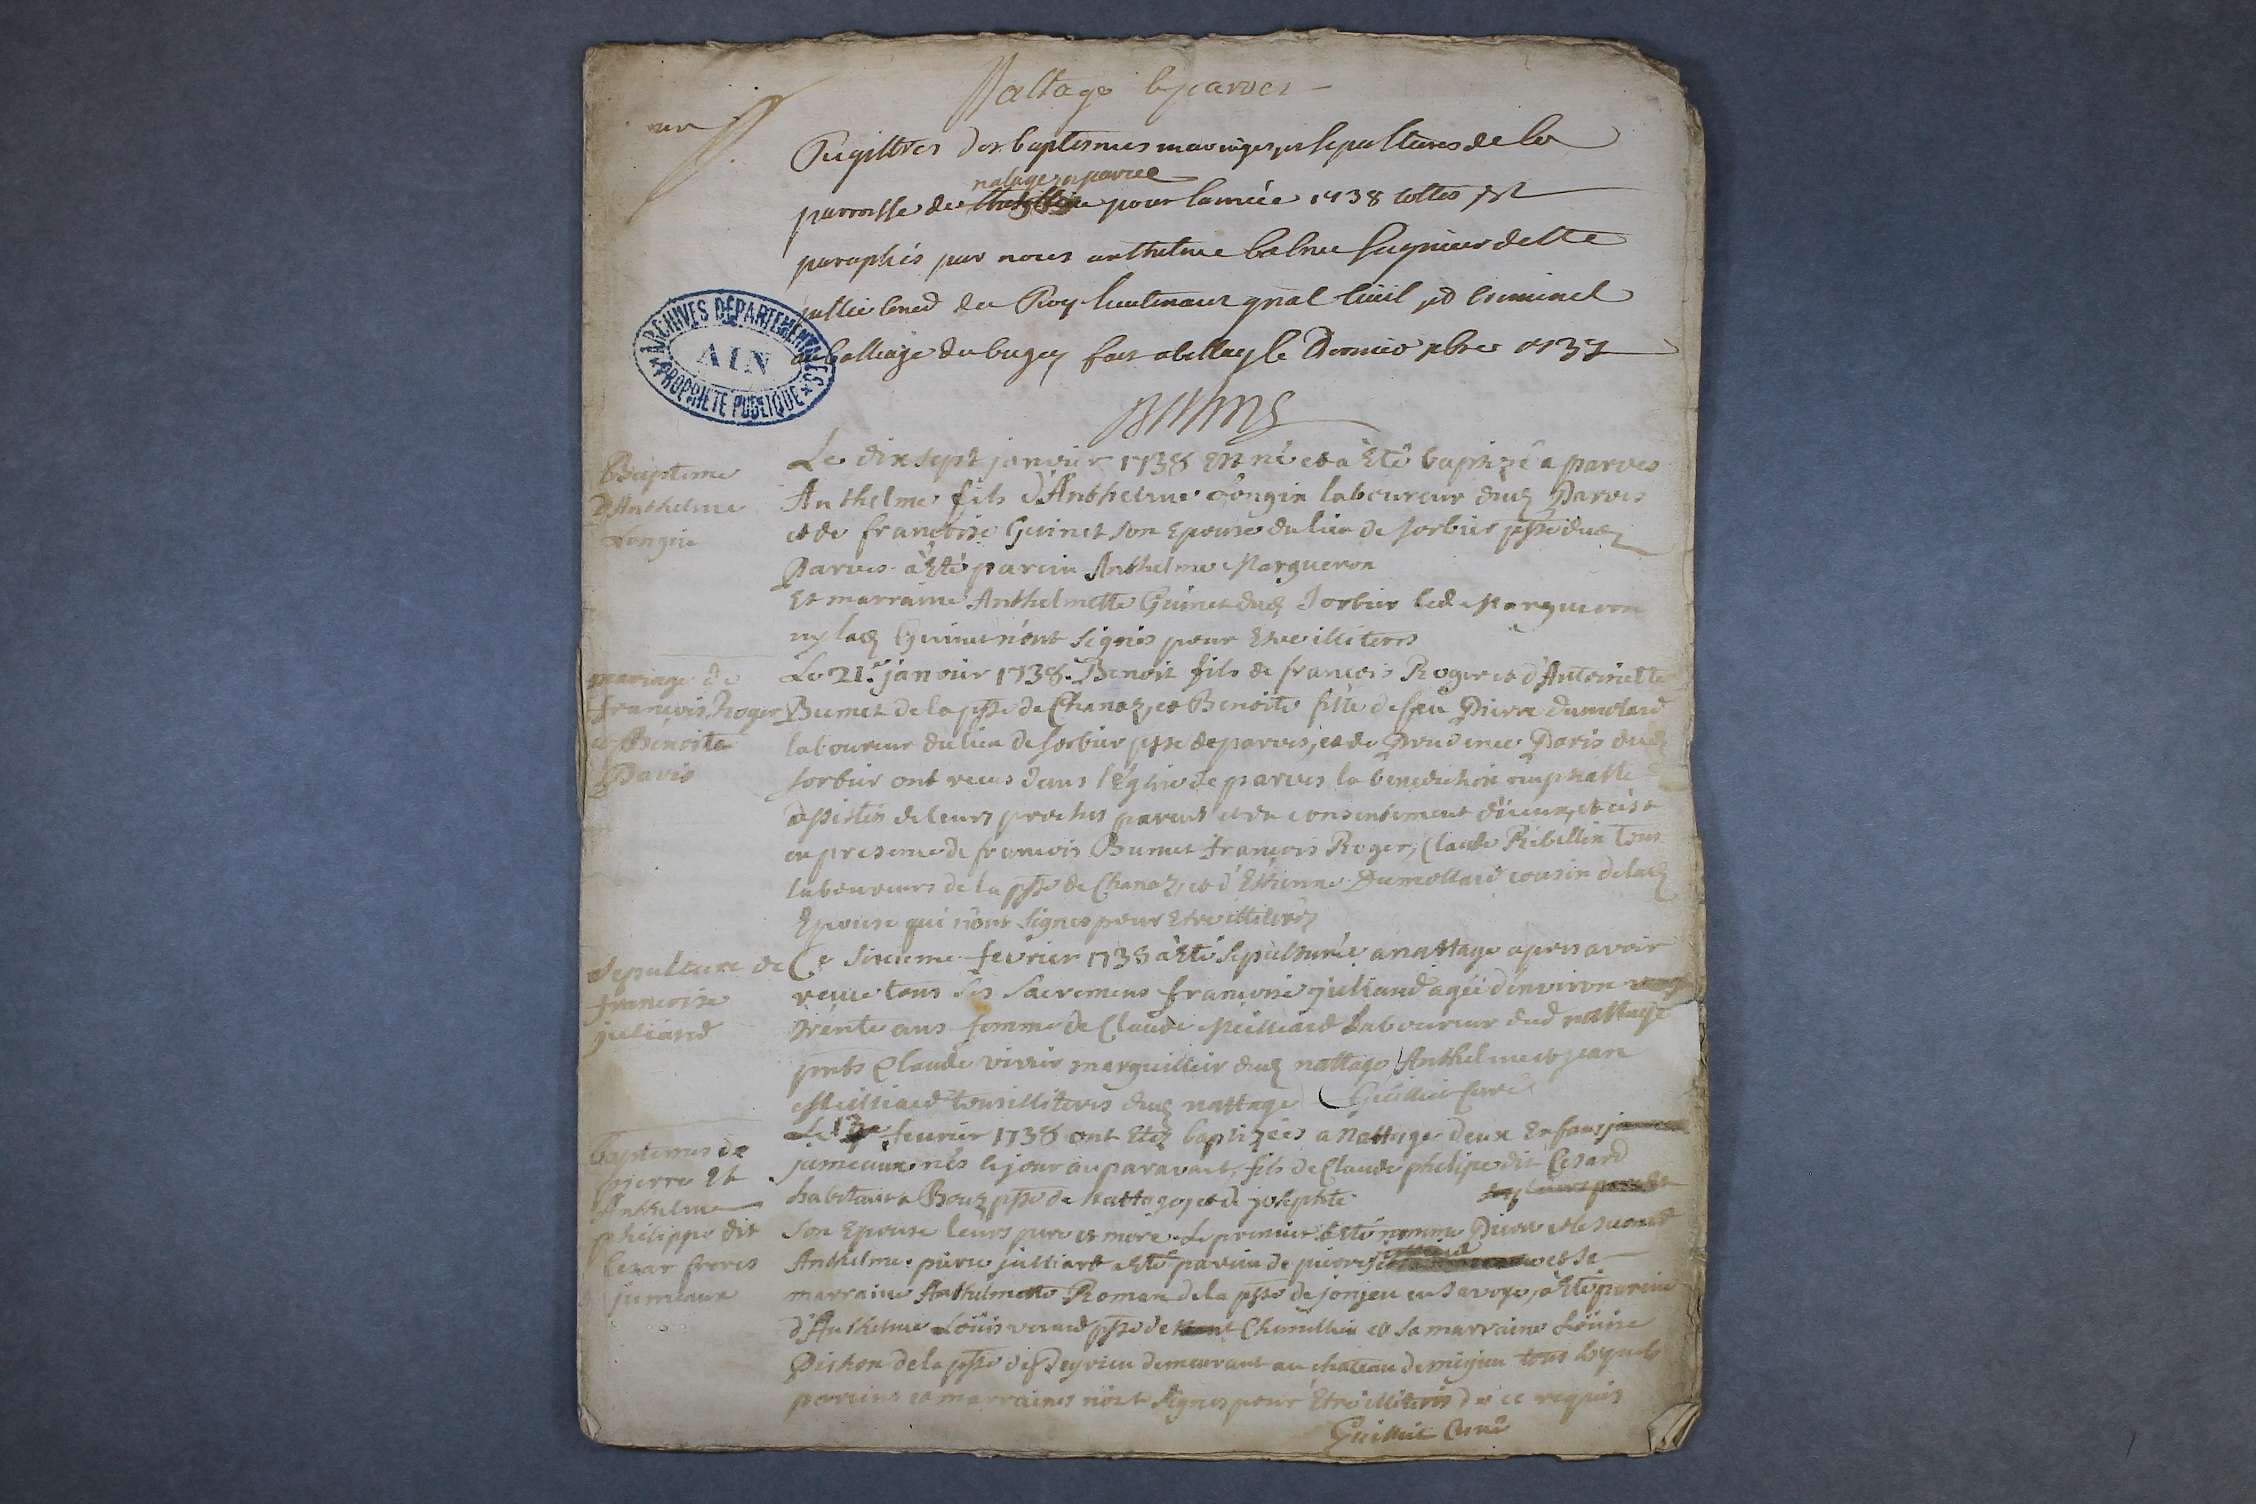 Nattage & parves
Registres des baptesmes mariages et sepultures de la
natage et parve
parroisse de pour lannée 1738 cottes et
paraphés par nous anthelme balme seigneur de Ste
julie consr du Roy lieutenant gnal civil et criminel
au balliage du bugey fait a belley le Dernier xbre 1737
ARCHIVES DÉPARTEMENTALES
AIN
PROPRIÉTÉ PUBLIQUE
Balme
Bapteme
D'Anthelme
Longin
Le dix sept janvier 1738 Est né et a Eté baptizé a parves
Anthelme fils d'Anthelme Longin laboureur dud Parves
et de francoise Guinet son Epouse du lieu de sorbier psse dud
Parves a Eté parein Anthelme Margueron
Et marraine Anthelmette Guinet dud sorbier led Margueron
ny lad Guinet n'ont signés pour Etre illiteres
mariage de
francois Roger
et Benoite
Paris
Le 21e janvier 1738 Benoit fils de francois Roger et d'Antoinette
Burnet de la psse de Chanaz, et Benoite fille de feu Pierre dumolard
laboureur du lieu de sorbier psse de parves, et de Prudence Paris dud
sorbier ont receus dans l'Eglise de parves la benediction nuptialle
assistés de leurs proches parens et du consentement d'iceux, et c'est
en presence de francois Burnet francois Roger, Claude Rebellin tous
laboureurs de la psse de Chanaz, et d'Etienne Dumollard cousin de lad
Epouse qui n'ont signes pour Etre illiterés
Sepulture de
francoise
juliand
Le sixieme fevrier 1738 a Eté sepulturée a nattage apres avoir
receue tous ses sacremens francoise juliand agée d'environ
trente ans femme de Claude Meilliard Laboureur dud nattage
pnts Claude vivier marguillier dud nattage Anthelme et jean
Meilliard tous illiteres dud nattage Guillet Curé
baptemes de
pierre Et
Anthelme
philippe dit
Cezar freres
jumeaux
Le fevrier 1738 ont Etez baptizées a Nattage deux Enfans
jumeaux nés le jour auparavant, fils de Claude phelipe dit Cesard
habitant a Bouz psse de Nattage, et de josephte
son Epouse leurs pere et mere. Le premier a Eté nommé Pierre et le second
Anthelme. pierre julliard a Eté parein de pierre et sa
marraine Anthelmette Roman de la psse de jonjeu en Savoye, a Eté parein
d'Anthelme Loüis psse de Chemillieu et sa marraine Loüise
Pichon de la psse de Peyrieu demeurant au chateau de mejieu tous lesquels
pareins et marraines n'ont signes pour Etre illiteres de ce requis
Guillet Curé